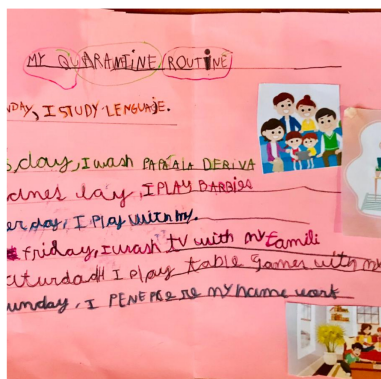 MY QUARANTINE ROUTINE
NDAY, I STUDY LENGUAJE.
sday, I wash PAPEALA DERIVA
dnes day, I PLAY BARBIES
day, I Play with my.
friday, I wash tv with my famili
aturdadH I play table games with my
unday, I PENEPRE re my home work